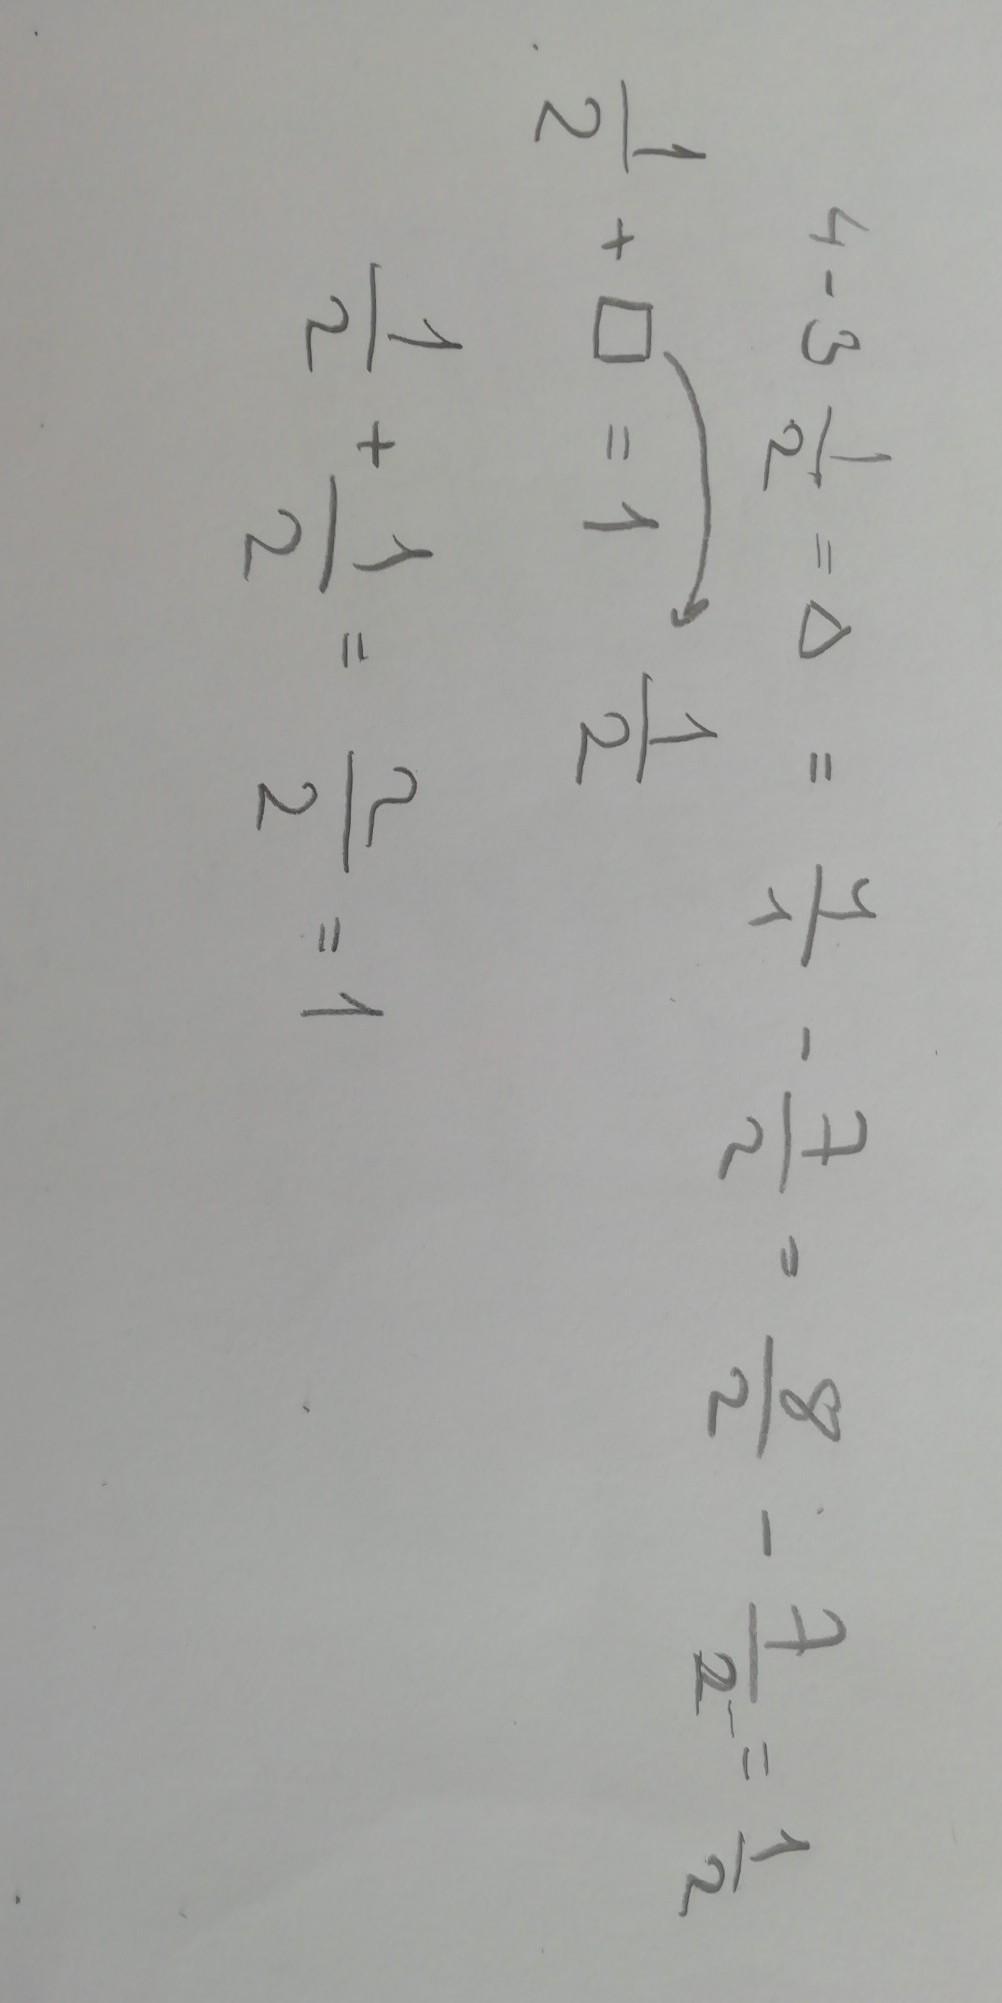 4 - 3 1/2 = △ = 4/1 - 7/2 = 8/2 - 7/2 = 1/2
1/2 + □ = 1 1/2
1/2 + 1/2 = 2/2 = 1